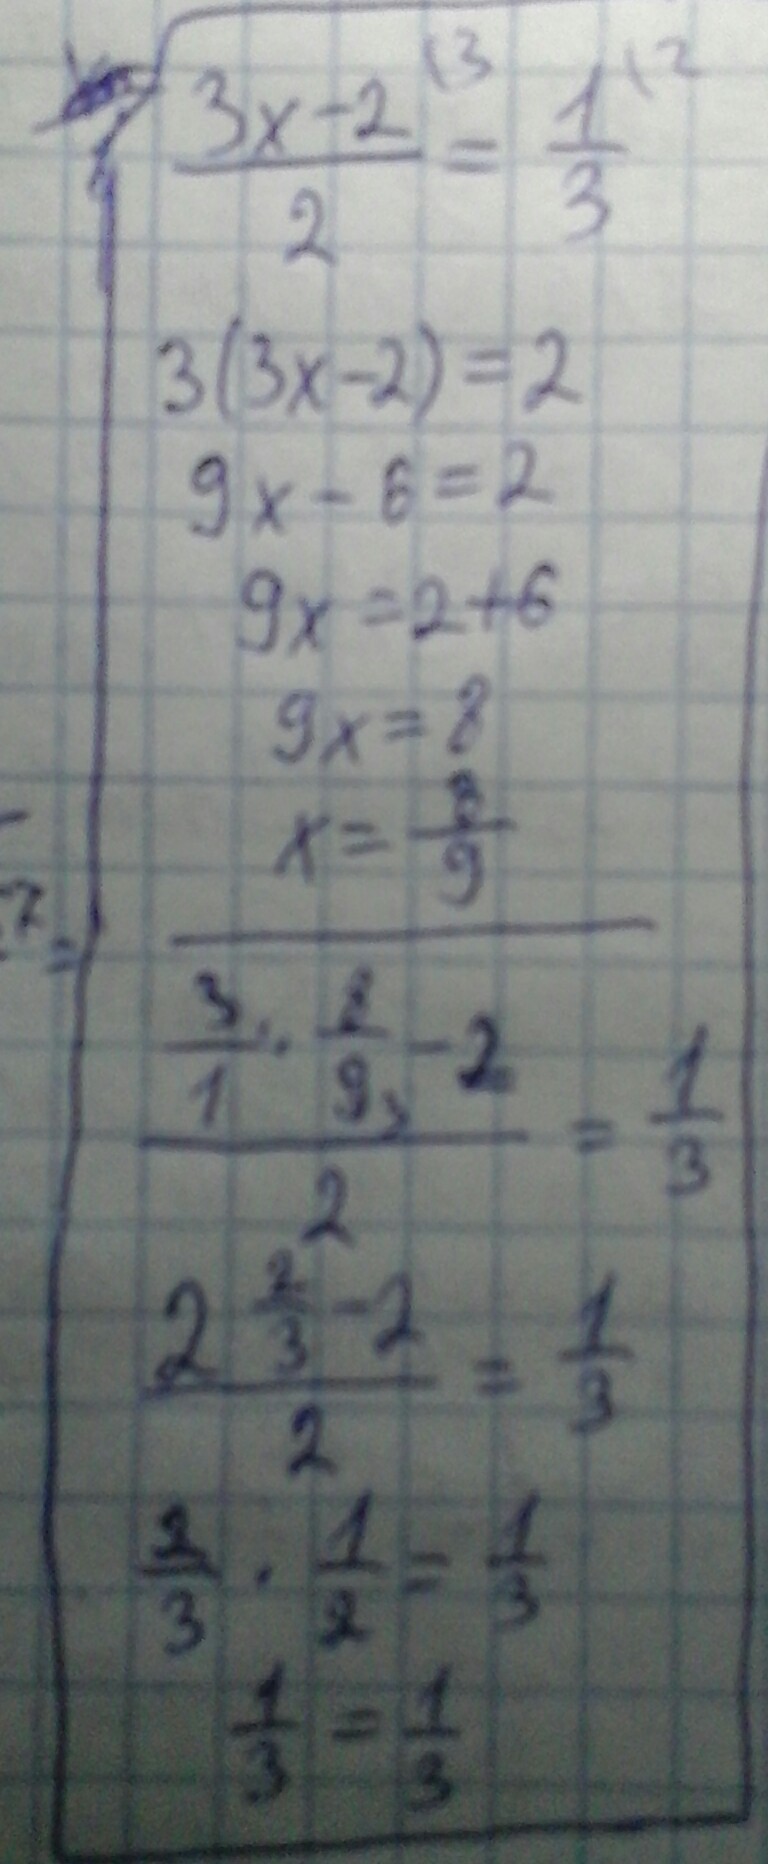 \3 \2
3x-2/2 = 1/3
3(3x-2)=2
9x-6=2
9x=2+6
9x=8
x=8/9
(3/1 · 8/9 - 2)/2 = 1/3
(2 2/3 - 2)/2 = 1/3
2/3 · 1/2 = 1/3
1/3 = 1/3